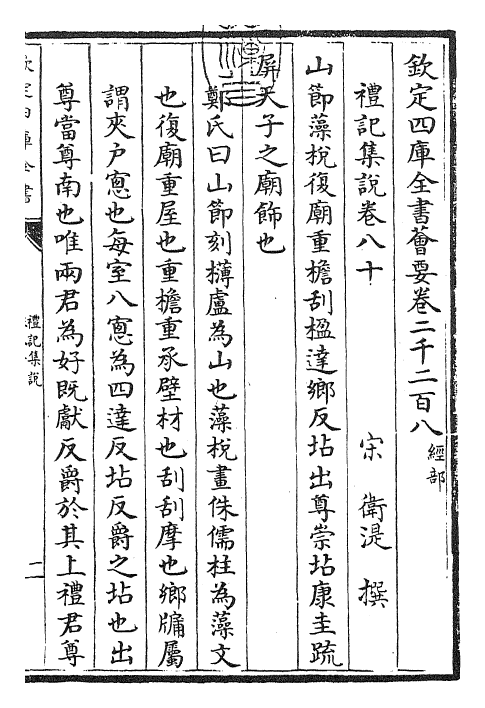 欽定四庫全書薈要卷二千二百八 經部
禮記集說卷八十 宋 衛湜 撰
山節藻梲復廟重檐刮楹達鄉反坫出尊崇坫康圭疏
屏天子之廟飾也
鄭氏曰山節刻欂盧為山也藻梲畫侏儒柱為藻文
也復廟重屋也重檐重承壁材也刮刮摩也鄉牖屬
謂夾戶窻也每室八窻為四達反坫反爵之坫也出
尊當尊南也唯兩君為好既獻反爵於其上禮君尊
欽定四庫全書
禮記集說
二